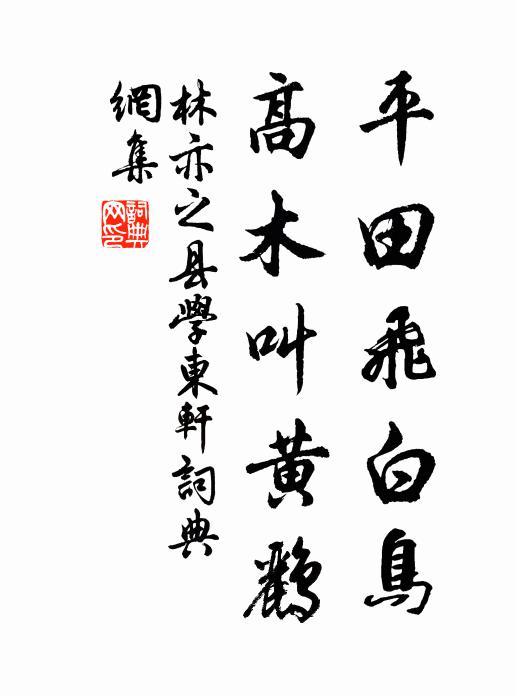 平田飛白鳥
高木叫黄鸝
林亦之县學東軒詞典
網集
詞典
网印